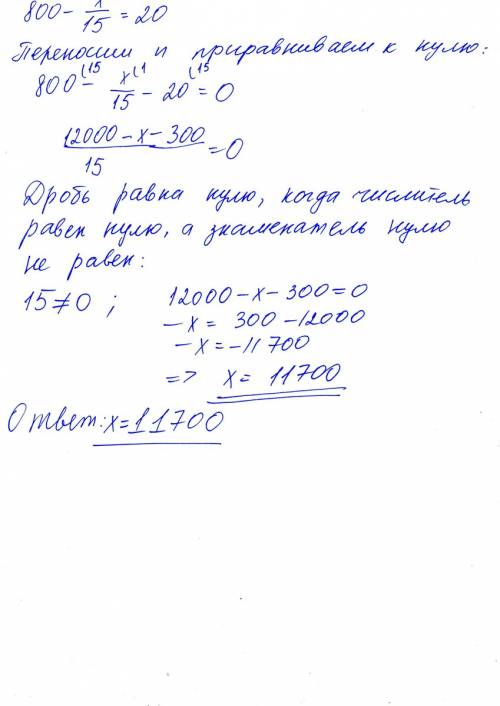 800 - x/15 = 20
Переносим и приравниваем к нулю:
800 (15 - x/15 (1 - 20 (15 = 0
12000 - x - 300 / 15 = 0
Дробь равна нулю, когда числитель
равен нулю, а знаменатель нулю
не равен:
15 ≠ 0 ; 12000 - x - 300 = 0
-x = 300 - 12000
-x = -11 700
=> x = 11700
Ответ: x = 11700